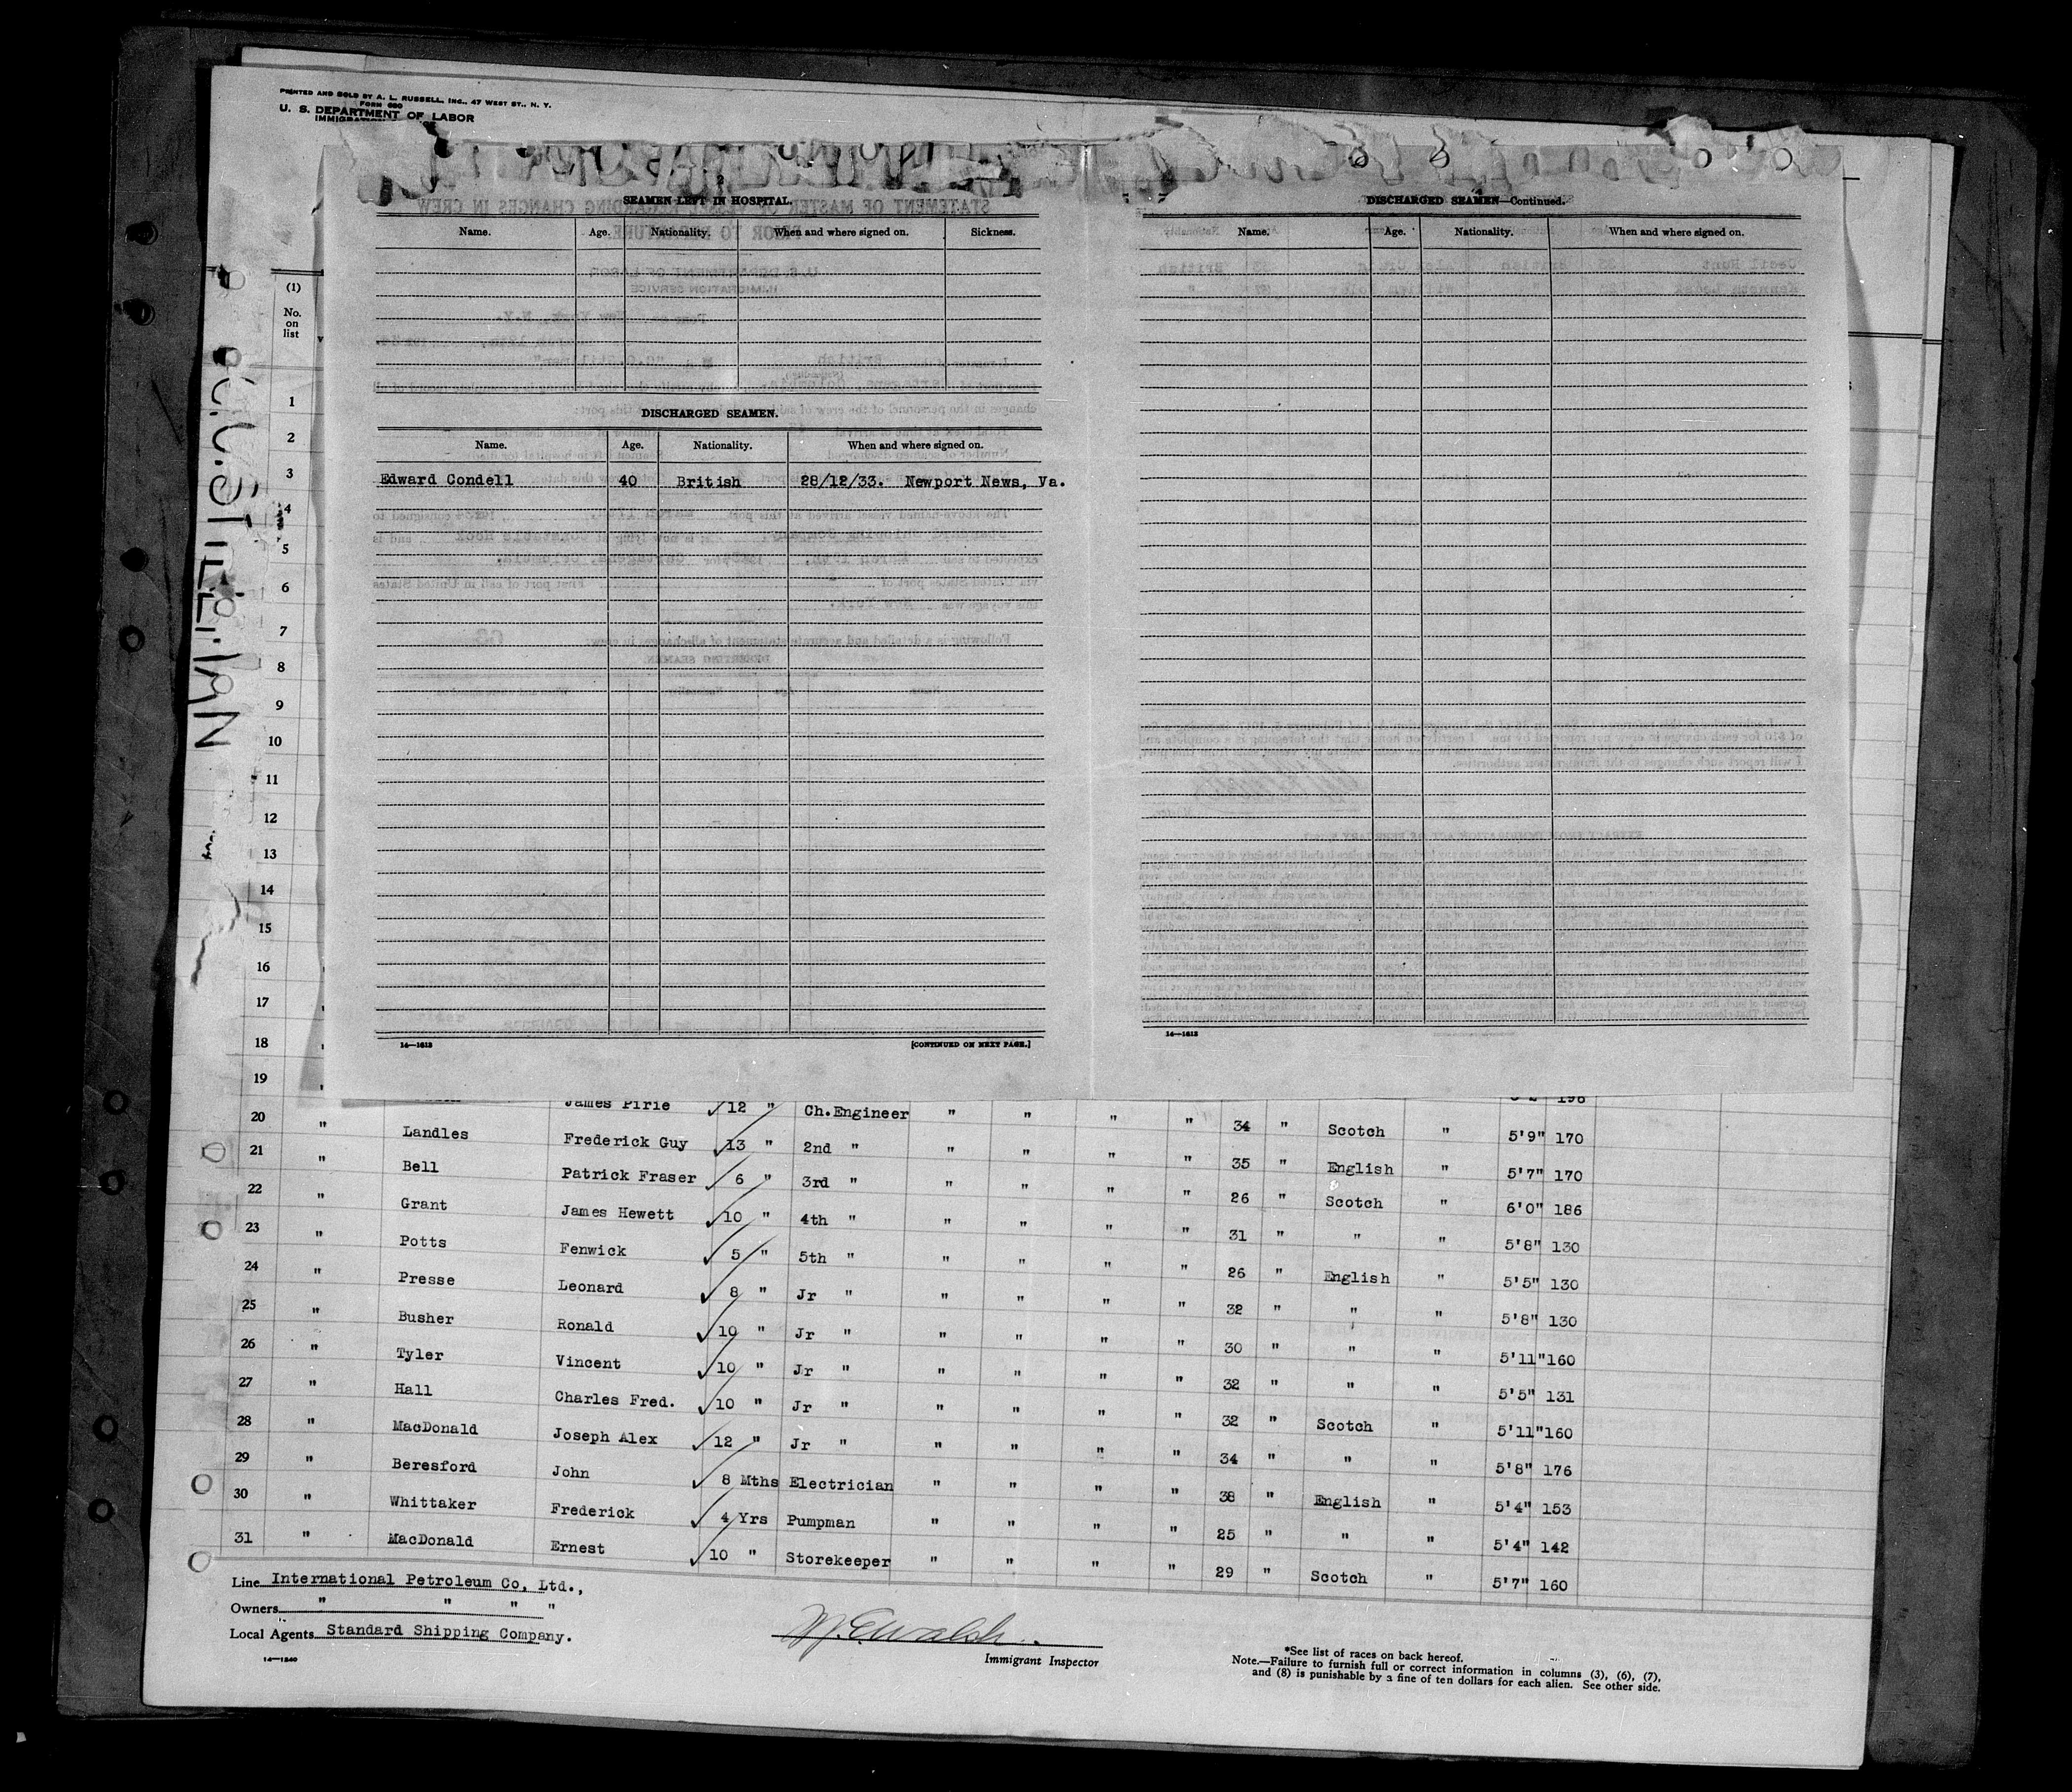 PRINTED AND SOLD BY A. L. RUSSELL, INC., 47 WEST ST., N. Y.
FORM 680
U. S. DEPARTMENT OF LABOR
C.O. STILLMAN
(1)
No. on list
SEAMEN LEFT IN HOSPITAL.
Name. Age. Nationality. When and where signed on. Sickness.
DISCHARGED SEAMEN.
Name. Age. Nationality. When and where signed on.
Edward Condell 40 British 28/12/33. Newport News, Va.
14—1613 [CONTINUED ON NEXT PAGE.]
DISCHARGED SEAMEN—Continued.
Name. Age. Nationality. When and where signed on.
14—1613
1
2
3
4
5
6
7
8
9
10
11
12
13
14
15
16
17
18
19
James Pirie 12 " Ch.Engineer " " " " 34 " Scotch " 5'9" 170
20 " Landles Frederick Guy 13 " 2nd " " " " " 35 " English " 5'7" 170
21 " Bell Patrick Fraser 6 " 3rd " " " " " 26 " Scotch " 6'0" 186
22 " Grant James Hewett 10 " 4th " " " " " 31 " " " 5'8" 130
23 " Potts Fenwick 5 " 5th " " " " " 26 " English " 5'5" 130
24 " Presse Leonard 8 " Jr " " " " " 32 " " " 5'8" 130
25 " Busher Ronald 10 " Jr " " " " " 30 " " " 5'11" 160
26 " Tyler Vincent 10 " Jr " " " " " 32 " " " 5'5" 131
27 " Hall Charles Fred. 10 " Jr " " " " " 32 " Scotch " 5'11" 160
28 " MacDonald Joseph Alex 12 " Jr " " " " " 34 " " " 5'8" 176
29 " Beresford John 8 Mths Electrician " " " " 38 " English " 5'4" 153
30 " Whittaker Frederick 4 Yrs Pumpman " " " " 25 " " " 5'4" 142
31 " MacDonald Ernest 10 " Storekeeper " " " " 29 " Scotch " 5'7" 160
Line International Petroleum Co, Ltd.,
Owners " " " "
Local Agents Standard Shipping Company.
14—1240
W. E. Walsh
Immigrant Inspector
*See list of races on back hereof.
Note.—Failure to furnish full or correct information in columns (3), (6), (7),
and (8) is punishable by a fine of ten dollars for each alien. See other side.